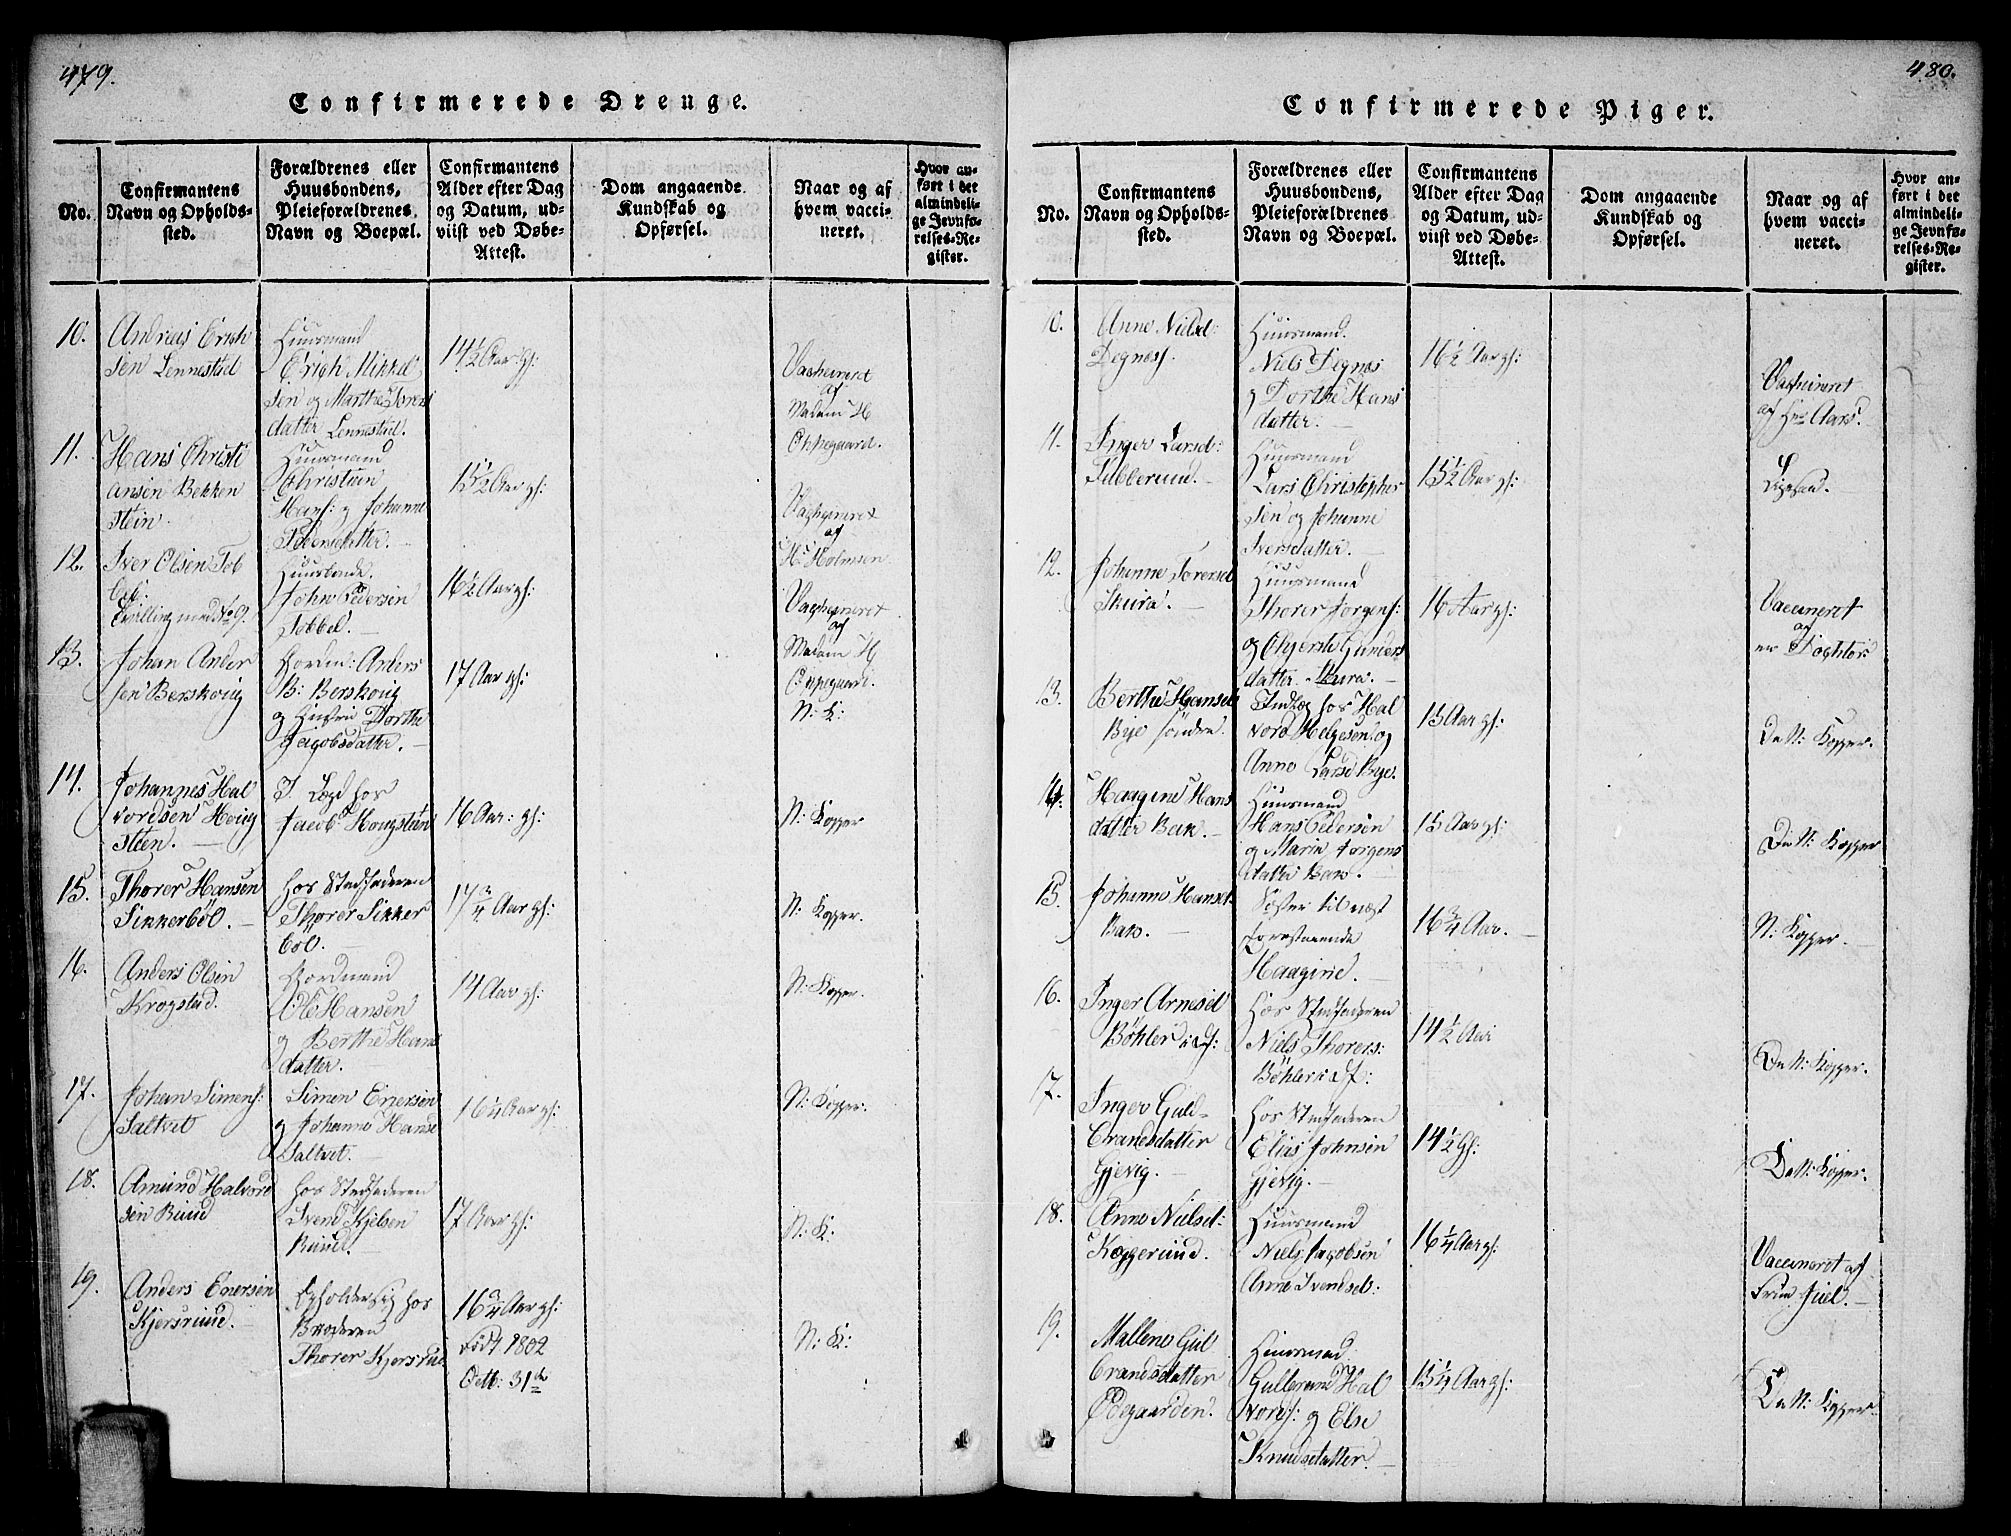 479.
Confirmerede Drenge.
No.
Confirmantens
Navn og Opholds-
sted.
Forældrenes eller
Huusbondens,
Pleieforældrenes
Navn og Boepæl.
Confirmantens
Alder efter Dag
og Datum, ud-
viist ved Døbe-
Attest.
Dom angaaende
Kundskab og
Opførsel.
Naar og af
hvem vacci-
neret.
Hvor an-
ført i det
almindeli-
ge Jevnfø-
relses-Re-
gister.
10.
Andreas Erich
sen Lennestad
Huusmand
Erich Mikkel
sen og Marthe Tores
datter Lennestad.
14 1/2 Aar gl:
Vaccineret
af
Madam H
Oppegaard.
11.
Hans Christi
ansen Bekken
sten.
Huusmand
Christian
Hans: og Johanne
Pedersdatter.
15 1/2 Aar gl:
Vaccineret
af
Hr Holmsen
12.
Iver Olsen Tob
bel:
Tvilling med No 9.
Huusbonde.
John Pedersen
Tobbel.
16 1/2 Aar gl:
Vaccineret
af
Madam H
Oppegaard.
13.
Johan Ander
sen Berskoug
Anders
B: Berskoug
og Hustru Dorthe
Jacobsdatter.
17 Aar gl:
N: K:
14.
Johannes Hal
vordsen Houg
steen.
I Lægd hos
Jacob Hougsteen
16 Aar: gl:
N: Kopper
15.
Thorer Hansen
Sikkerbøl.
hos Stedfaderen
Thorer Sikker
bøl.
17 3/4 Aar gl:
N: Kopper.
16.
Anders Olsen
Krogstad.
Gaardmand
Ole Hansen
og Berthe Hans
datter.
14 Aar gl:
N: Kopper.
17.
Johan Simens:
Saltvet
Simen Enersen
og Johanne Hansd
Saltvet.
16 1/4 Aar gl:
N: Kopper.
18.
Amund Halvord
sen Ruud
hos Stedfaderen
Svend Kjelsen
Ruud.
17 Aar gl:
N: K:
19.
Anders Enersen
Kjersrud.
Opholder sig hos
Broderen
Thorer Kjersrud
16 3/4 Aar gl:
Født 1802
Octb: 31de
N: K:
480.
Confirmerede Piger.
No.
Confirmantens
Navn og Opholds-
sted.
Forældrenes eller
Huusbondens,
Pleieforældrenes
Navn og Boepæl.
Confirmantens
Alder efter Dag
og Datum, ud-
viist ved Døbe-
Attest.
Dom angaaende
Kundskab og
Opførsel.
Naar og af
hvem vacci-
neret.
Hvor an-
ført i det
almindeli-
ge Jevnfø-
relses-Re-
gister.
10.
Anne Nielsd:
Degnes.
Huusmand.
Niels Degnes
og Dorthe Hans
datter.
16 1/2 Aar gl:
Vaccineret
af Hr Aars.
11.
Inger Larsd:
Tubberud.
Huusmand
Lars Christopher
sen og Johanne
Iversdatter.
15 1/2 Aar gl:
Ligesaa.
12.
Johanne Torersd
Skura.
Huusmand
Thorer Jorgens:
og Chjersti Gunders
datter Skura.
16 Aar gl:
Vaccineret
af
en Dochtor
13.
Berthe Hansd
Bye søndre.
Indlæg hos Hal
vord Helgesen og
Anne Larsd Bye.
15 Aar gl:
De N: Kopper.
14.
Haagine Hans
datter Bak.
Huusmand
Hans Pedersen
og Marie Jorgens
datter Bak.
15 Aar gl:
De N: Kopper
15.
Johanne Hansd.
Bak.
Søster til næst
forestaaende
Haagine.
16 3/4 Aar.
N: Kopper.
16.
Inger Arnesd
Bøhler
hos Stedfaderen
Niels Thorers:
Bøhler
14 1/2 Aar
De N: Kopper.
17.
Inger Guld-
brandsdatter
Gjevig.
hos Stedfaderen
Elias Johnsen
Gjevig.
14 1/2 Gl:
De N: Kopper.
18.
Anne Nielsd:
Kopperud.
Huusmand
Niels Jacobsen
Anne Svendsd:
16 1/4 Aar gl:
Vaccineret af
Frue Juel.
19.
Mallene Gul
brandsdatter
Ødegaarden.
Huusmand
Gulbrand Hal
vors: og Else
Knudsdatter.
15 1/4 Aar gl:
De N: Kopper.